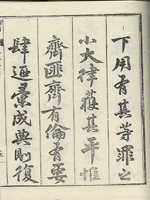 下用胥其等罪之
小大律獲其平惟
齊匪齊有倫有要
肆迺彙成典則復